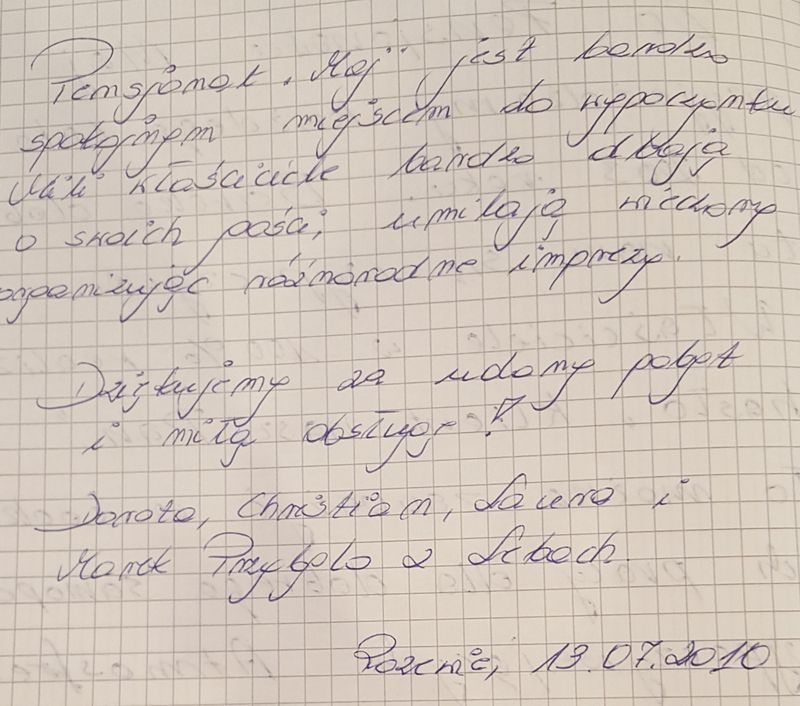 Pensjonat "Maj" jest bardzo
spokojnym miejscem do wypoczynku
Mili właściciele bardzo dbają
o swoich gości, umilają wieczory
organizując różnorodne imprezy.
Dziękujemy za udany pobyt
i miłą obsługę!
Dorota, Christian, Laura i
Marek Przybyło z Lebach
13.07.2010